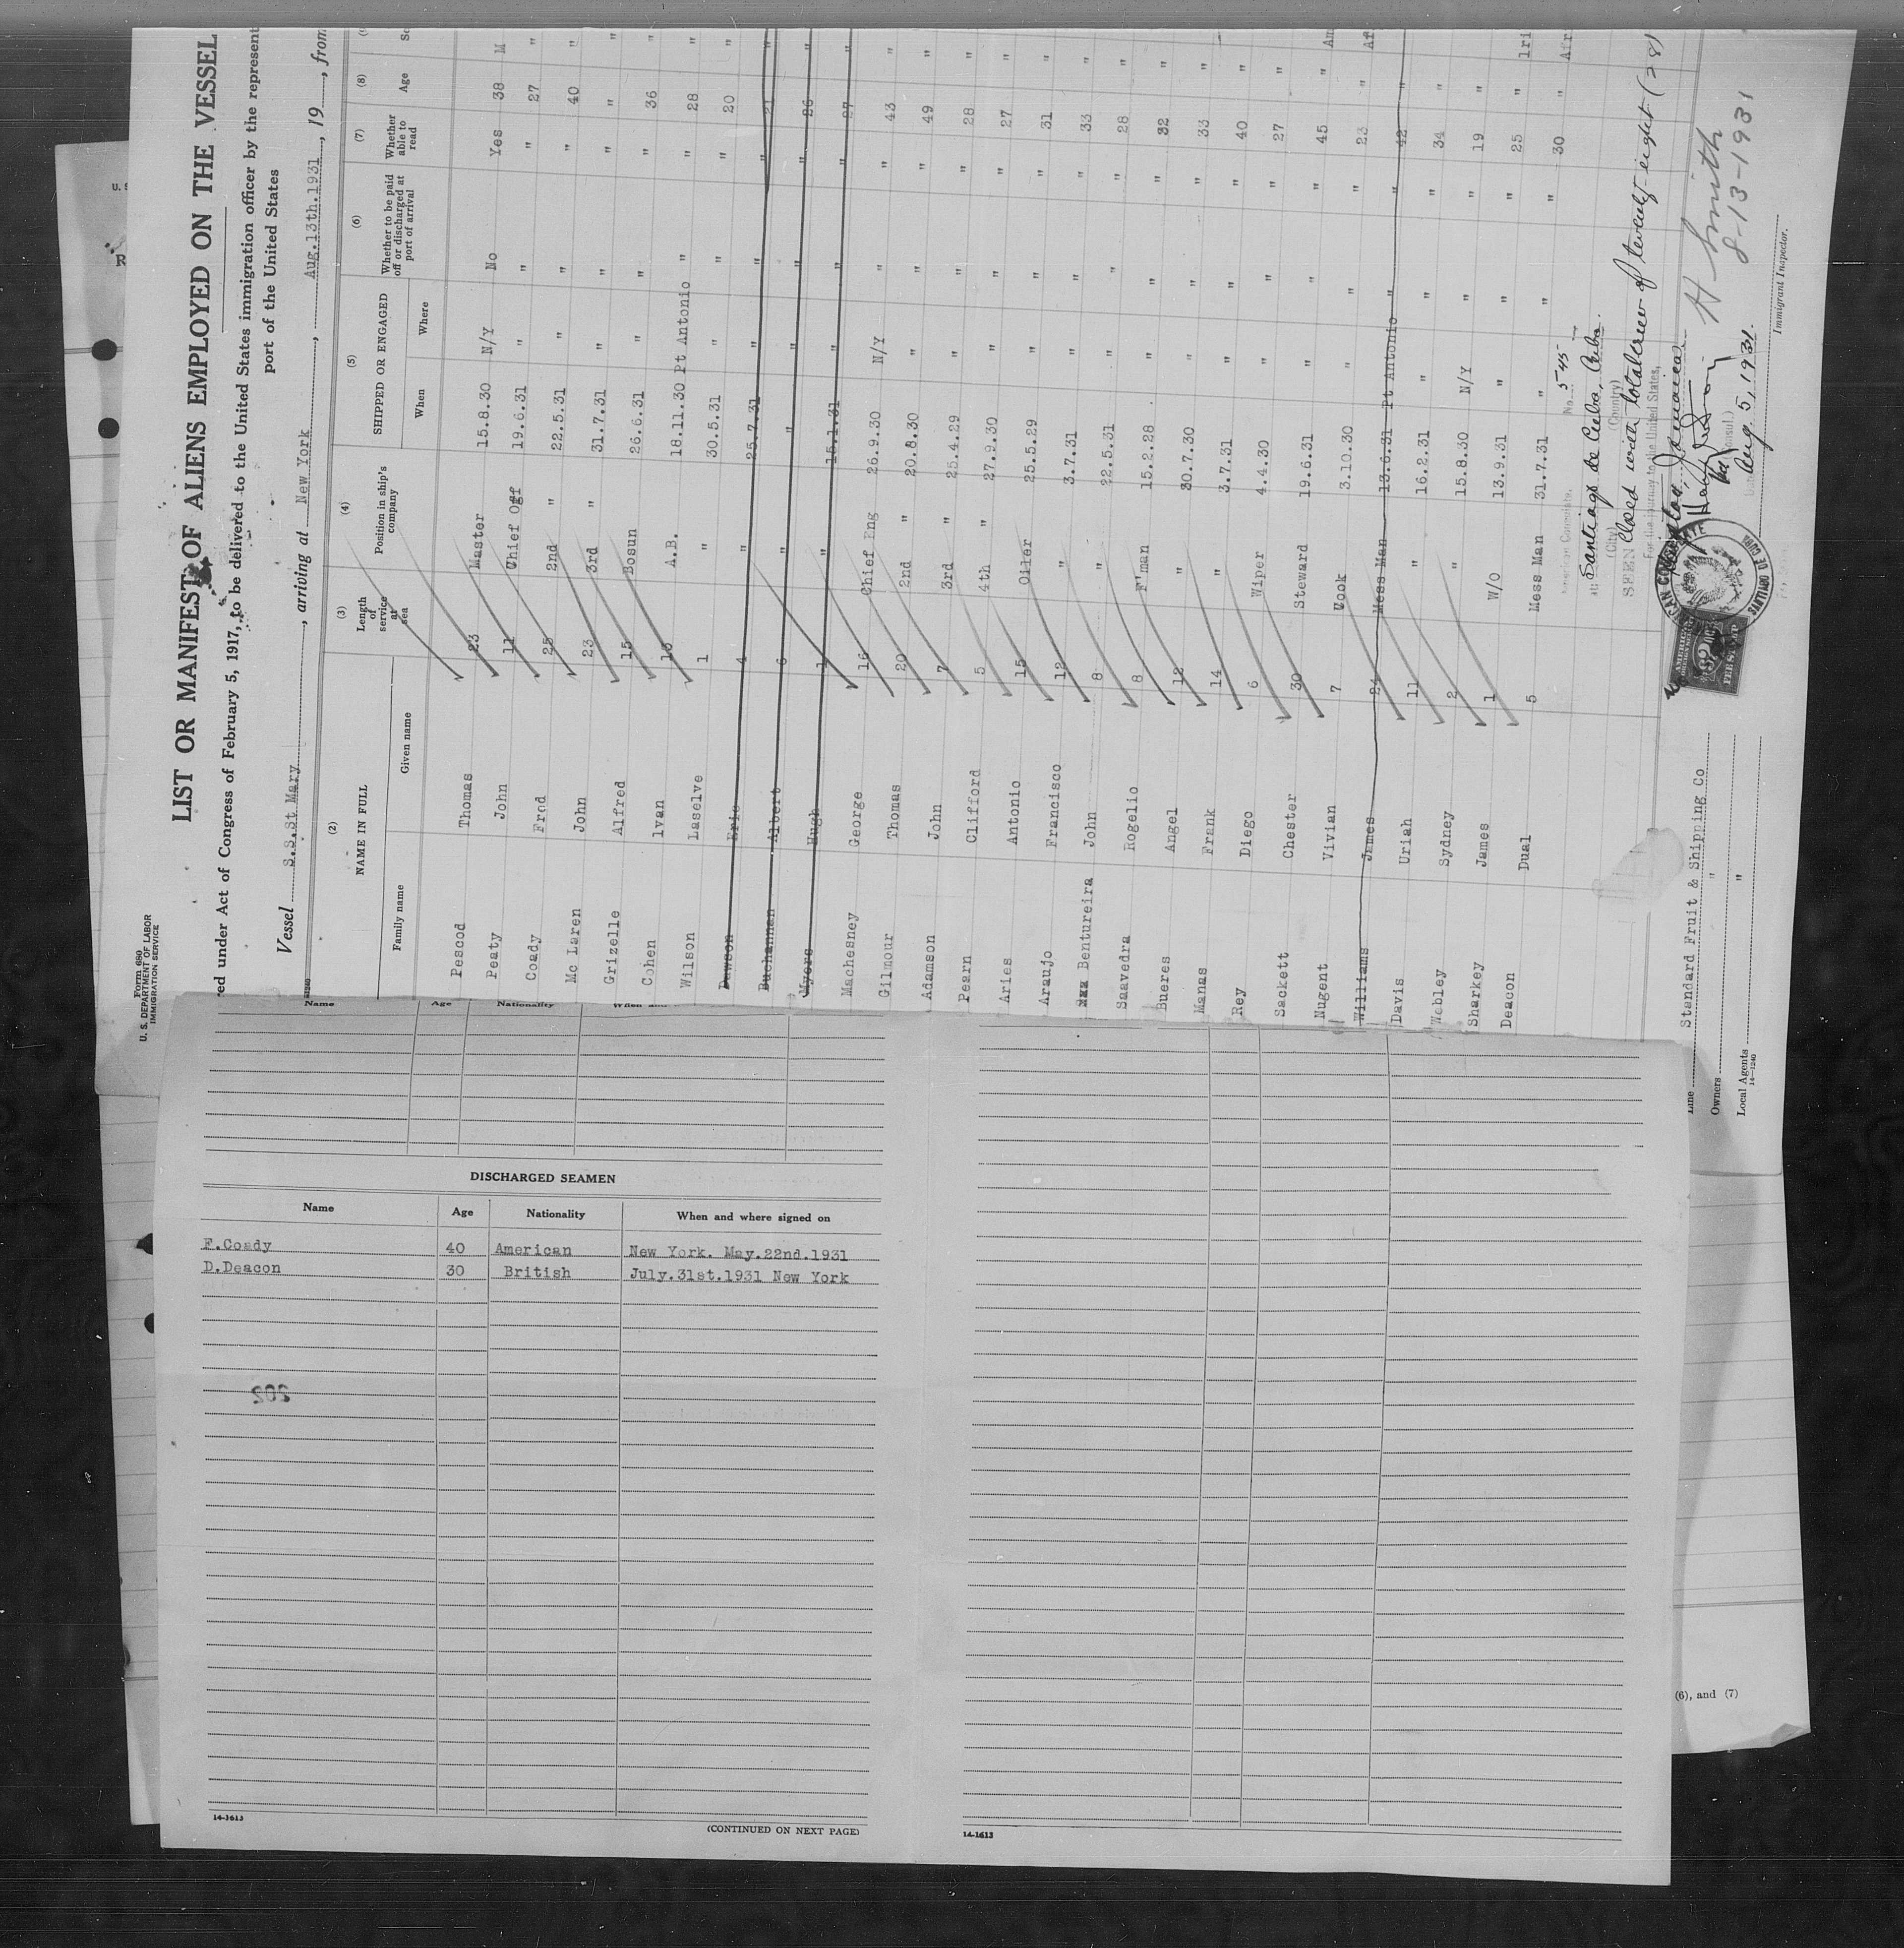 Form 680
U. S. DEPARTMENT OF LABOR
IMMIGRATION SERVICE
LIST OR MANIFEST OF ALIENS EMPLOYED ON THE VESSEL
red under Act of Congress of February 5, 1917, to be delivered to the United States immigration officer by the represent
port of the United States
Vessel S.S.St Mary, arriving at New York, Aug.13th.1931, 19, from
(2) (3) (4) (5) (6) (7) (8)
NAME IN FULL
Family name Given name
Length of service at sea
Position in ship's company
SHIPPED OR ENGAGED
When Where
Whether to be paid off or discharged at port of arrival
Whether able to read
Age
Pescod Thomas 23 Master 15.8.30 N/Y No Yes 38 M
Peaty John 11 Chief Off 19.6.31 " " " 27 "
Coady Frnd 25 2nd " 22.5.31 " " " 40 "
Mc Laren John 23 3rd " 31.7.31 " " " " "
Grizelle Alfred 15 Bosun 26.6.31 " " " 36 "
Cohen Ivan 13 A.B. 18.11.30 Pt Antonio " " 28 "
Wilson Laselve 1 " 30.5.31 " " " 20 "
Dawson Eric 4 " 25.7.31 " " " 21 "
Buchannan Albert 6 " " " " " 26 "
Myers Hugh 1 " 15.1.31 " " " 27 "
Machesney George 16 Chief Eng 26.9.30 N/Y " " 43 "
Gilmour Thomas 20 2nd " 20.8.30 " " " 49 "
Adamson John 7 3rd " 25.4.29 " " " 28 "
Pearn Clifford 5 4th " 27.9.30 " " " 27 "
Aries Antonio 15 Oiler 25.5.29 " " " 31 "
Araujo Francisco 12 " 3.7.31 " " " 33 "
Bentureira John 8 " 22.5.31 " " " 28 "
Saavedra Rogelio 8 F'man 15.2.28 " " " 32 "
Bueres Angel 12 " 30.7.30 " " " 33 "
Manas Frank 14 " 3.7.31 " " " 40 "
Rey Diego 6 Wiper 4.4.30 " " " 27 "
Sackett Chester 30 Steward 19.6.31 " " " 45 "
Nugent Vivian 7 Cook 3.10.30 " " " 23 "
Williams James 24 Mess Man 13.6.31 Pt Antonio " " 42 "
Davis Uriah 11 " 16.2.31 " " " 34 "
Webley Sydney 2 " 15.8.30 N/Y " " 19 "
Sharkey James 1 W/O 13.9.31 " " " 25 "
Deacon Dual 5 Mess Man 31.7.31 " " " 30 "
American Consulate. No. 545
at Santiago de Cuba, Cuba.
(City) (Country)
SEEN Closed with total crew of twenty-eight (28)
For the journey to the United States,
Jamaica.
Aug. 5, 1931.
H Smith
8-13-1931
Immigrant Inspector.
AMERICAN
FEE STAMP
SANTIAGO DE CUBA
Line Standard Fruit & Shipping Co
Owners "
Local Agents "
14—1240
Name Age Nationality
DISCHARGED SEAMEN
Name Age Nationality When and where signed on
F.Coady 40 American New York. May.22nd.1931
D.Deacon 30 British July.31st.1931 New York
14-1613
(CONTINUED ON NEXT PAGE)
14-1613
(6), and (7)